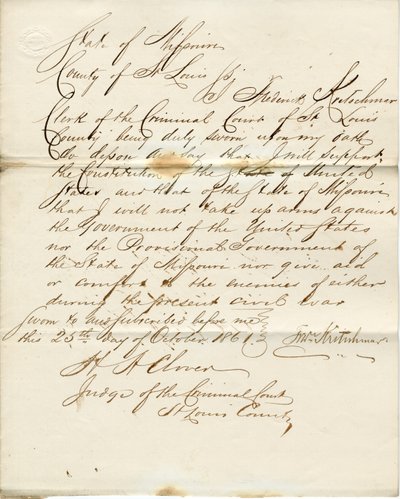 State of Missouri
County of St Louis } SS
I Frederick Kretschmar
Clerk of the Criminal Court of St Louis
County being duly sworn upon my oath
do depose and say that I will support
the Constitution of the State of United
States and that of the State of Missouri
that I will not take up arms against
the Government of the United States
nor the Provisional Government of
the State of Missouri nor give aid
or comfort to the enemies of either
during the present civil war
Sworn to and subscribed before me
this 25th day of October 1861 } Fredk Kretschmar
H A Clover
Judge of the Criminal Court
St Louis County